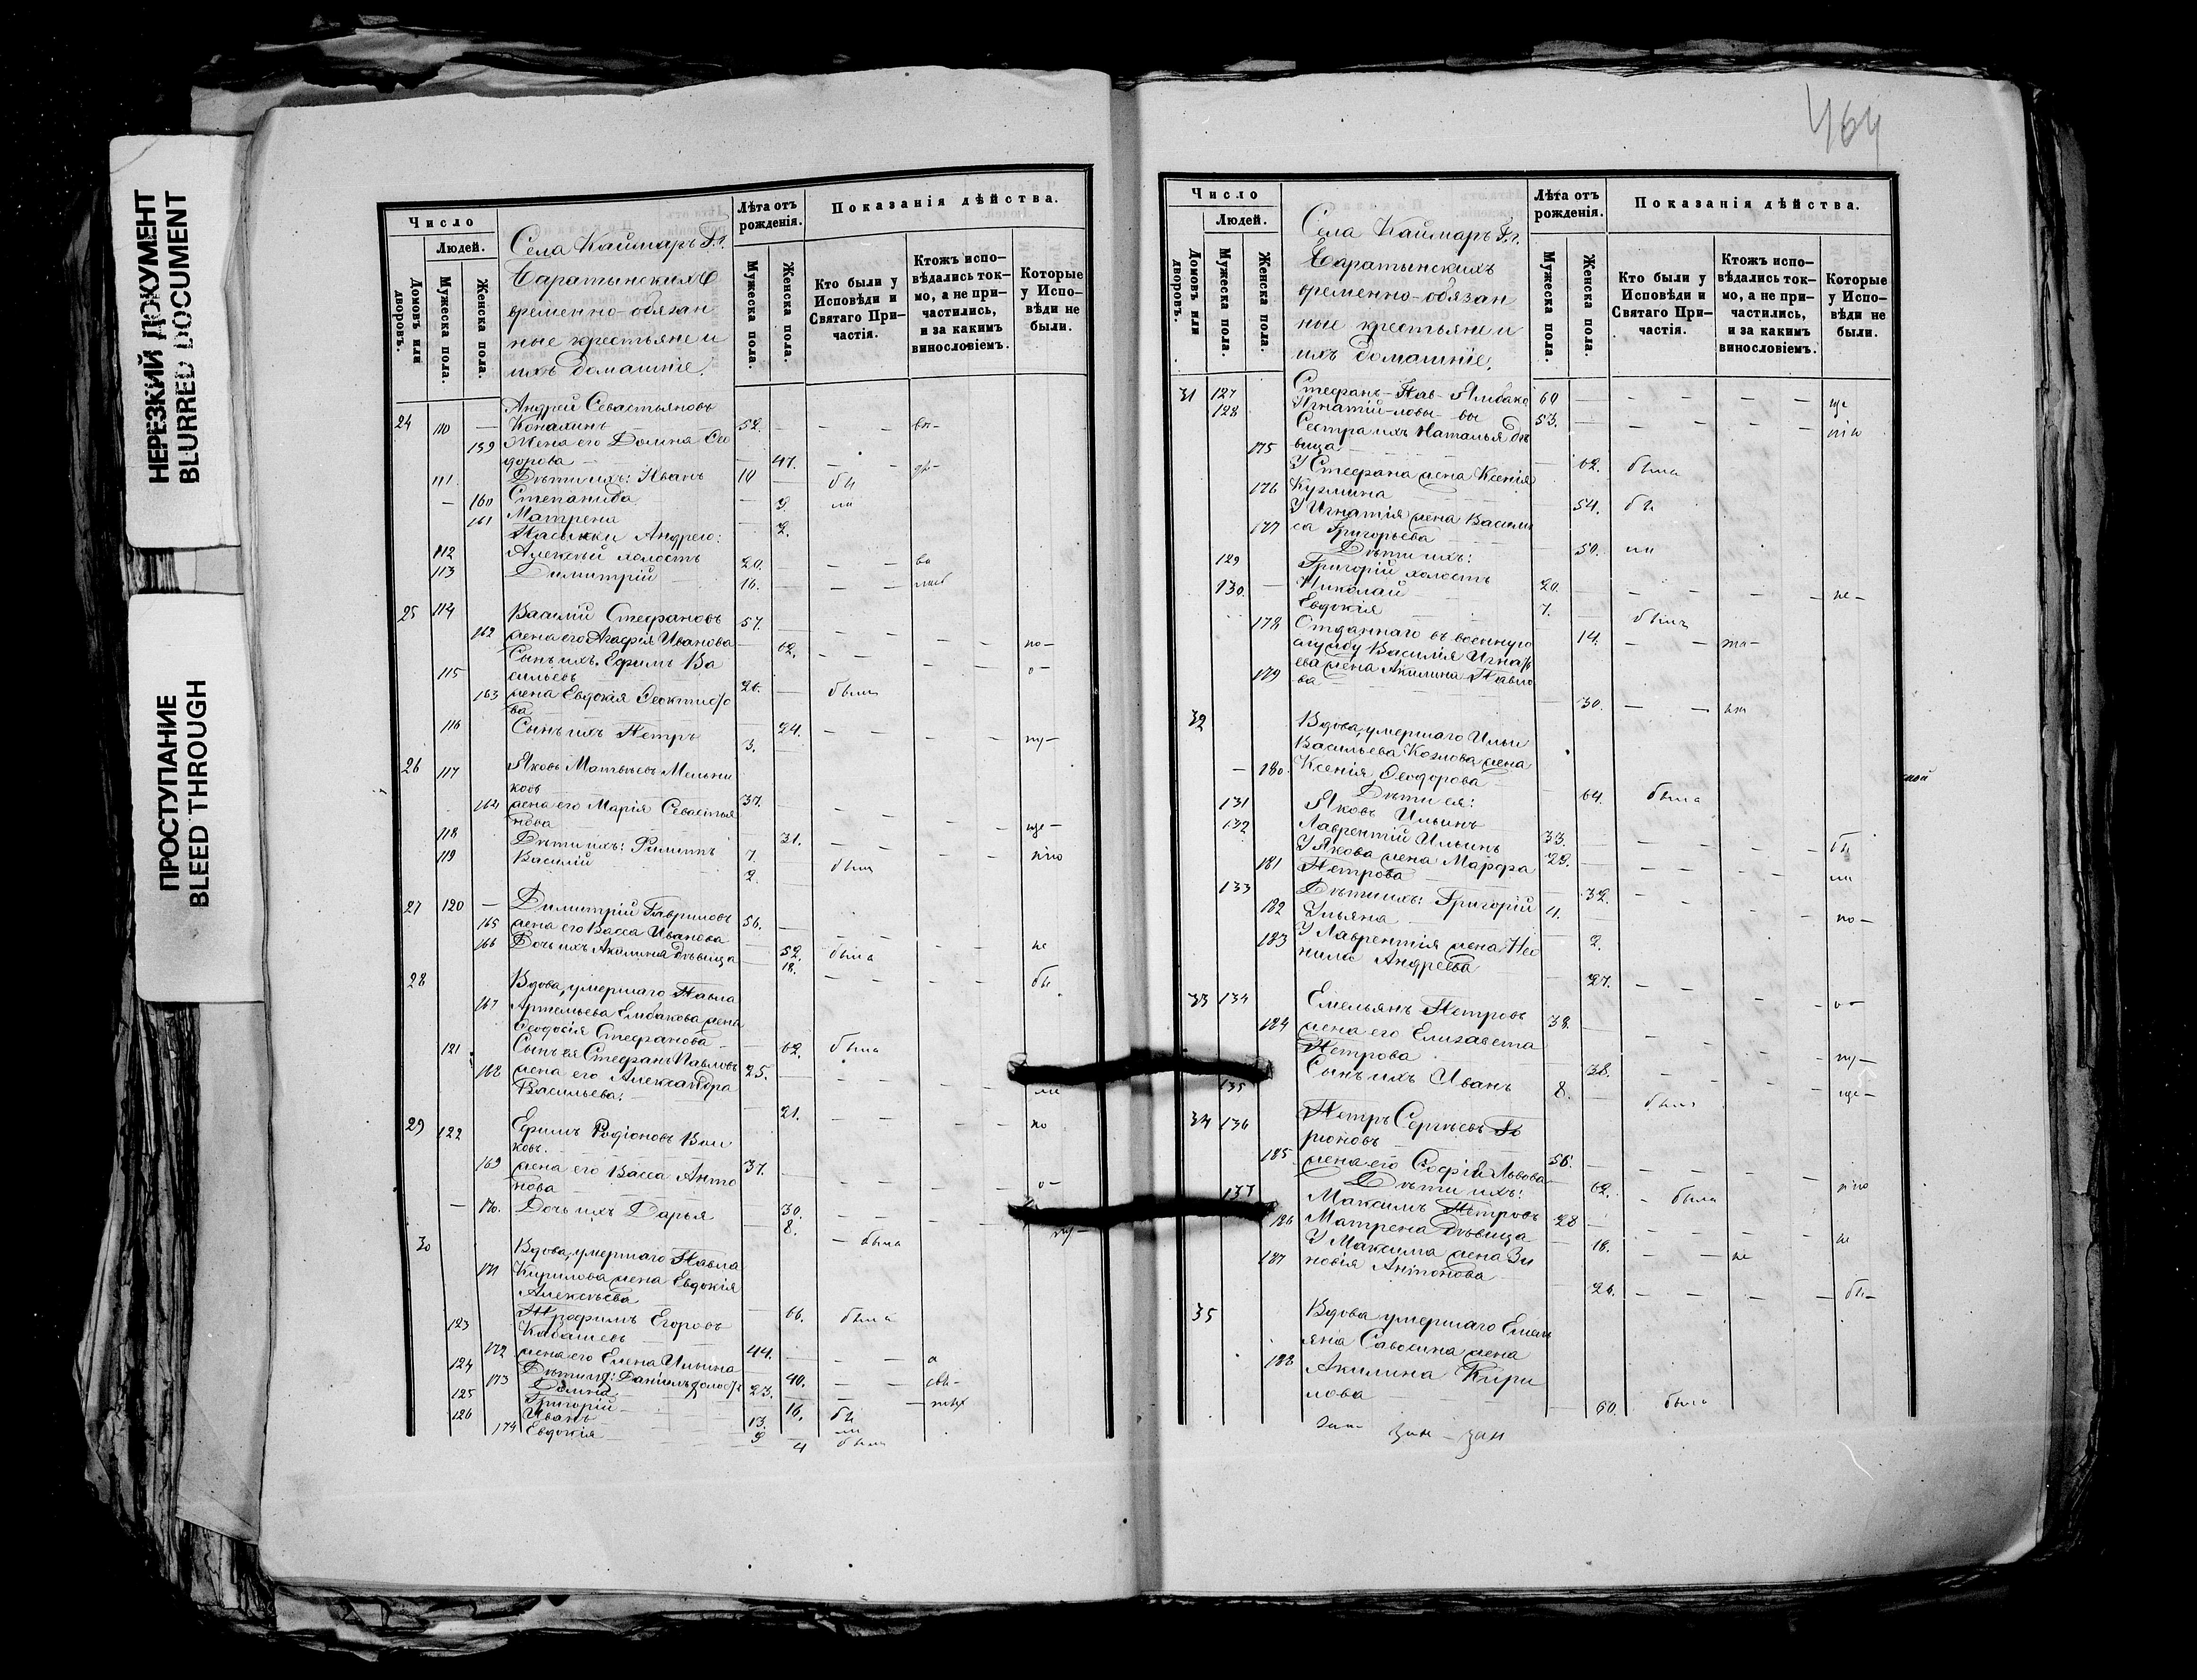 НЕРЕЗКИЙ ДОКУМЕНТ
BLURRED DOCUMENT
ПРОСТУПАНИЕ
BLEED THROUGH
Число
Людей.
Домовъ или дворовъ.
Мужеска пола.
Женска пола.
Села Каймаръ Г.г.
Баратынскихъ
временно-обязан
ные крестьяне и
ихъ домашніе.
Лѣта отъ рожденія.
Мужеска пола.
Женска пола.
Показанія дѣйства.
Кто были у Исповѣди и Святаго При-частія.
Ктожъ испо-вѣдались ток-мо, а не при-частились, и за какимъ винословіемъ.
Которые у Испо-вѣди не были.
Андрей Севастьяновъ
24 110 — Конахинъ — 52. — — — вы-
159 Жена его Домна Ѳео
дорова — — 47. — —
111 Дѣти ихъ: Иванъ 10 — бы
— 160 Степанида — 9. ли
161 Матрена — 2.
Пасынки Андрею:
112 Алексѣй холостъ 20. — — —
113 Димитрій 16. — — —
25 114 Василій Стефановъ 57. — — — — по-
162 жена его Агафія Иванова — 62. — — — о-
Сынъ ихъ Ефимъ Ва
115 сильевъ 26. — были
163 жена Евдокія Ѳеоктисто
ва — 24. — — — — пу-
116 Сынъ ихъ Петръ 3.
26 117 Яковъ Матвѣевъ Мельни
ковъ 37. — — — — ще-
164 жена его Марія Севастья
нова — 31. — — — — нію
118 Дѣти ихъ: Филиппъ 7. — былъ
119 Василій 2. —
27 120 — Димитрій Гавриловъ 56. — — — — не
165 жена его Васса Иванова — 52. была
166 Дочь ихъ Акилина дѣвица — 18. — — — — бы
28 Вдова, умершаго Павла
167 Артемьева Ембакова жена
Ѳеодосія Стефанова — — 62. была
121 Сынъ ея Стефанъ Павловъ 25. — — — — — ли
168 жена его Александра
Васильева: — 21. — — — — по
29 122 Ефимъ Родіоновъ Вол
ковъ. 37. — — — — о-
169 жена его Васса Анто
нова — 30. — — — —
— 170. Дочь ихъ Дарья — 8. — была
30 Вдова, умершаго Павла
171 Кирилова жена Евдокія
Алексѣева — 66. была
123 Трофимъ Егоровъ
Кабашевъ 44. — — —
172 жена его Елена Ильина — 40. — —
124 Дѣти ихъ: Даніилъ холостъ 23. — —
173 Домна — 16. бы
125 Григорій 13. ли
126 Иванъ 9
174 Евдокія — 4 была
464
Число
Людей.
Домовъ или дворовъ.
Мужеска пола.
Женска пола.
Села Каймаръ Г.г.
Баратынскихъ
временно-обязан
ные крестьяне и
ихъ домашніе.
Лѣта отъ рожденія.
Мужеска пола.
Женска пола.
Показанія дѣйства.
Кто были у Исповѣди и Святаго При-частія.
Ктожъ испо-вѣдались ток-мо, а не при-частились, и за какимъ винословіемъ.
Которые у Испо-вѣди не были.
31 127 Стефанъ-Пав- 60 — — — — ще
128 Игнатій-ловы- вы 53. — — — — нію
Сестра ихъ Наталья дѣ
175 вица — — 62. была
У Стефана жена Ксенія
176 Кузмина — 54. бы
У Игнатія жена Васили
177 са Григорьева — 50. ли
Дѣти ихъ:
129 Григорій холостъ 20. — — — — не-
130. — Николай 7. былъ
178 Евдокія — 14. — —
Отданнаго въ военную
службу Василія Игнать
179 ева жена Акилина Павло
ва — — 30. — —
32 Вдова, умершаго Ильи
Васильева Козлова жена
— 180. Ксенія Ѳеодорова — — 64. была
Дѣти ея:
131 Яковъ Ильинъ 33. — — — — бы
132 Лаврентій Ильинъ 29. — — — — ли
У Якова жена Марфа
181 Петрова — 32. — — — — по-
133 Дѣти ихъ: Григорій 11.
182 Ульяна — 2.
183 У Лаврентія жена Нео
нила Андреева — 27. — — — — о-
33 134 Емельянъ Петровъ 38. — — — — пу-
184 жена его Елизавета
Петрова — 38. — — — — ще-
135 Сынъ ихъ Иванъ 8. — былъ
34 136 Петръ Сергѣевъ
рионовъ 56. — — — — нію
185. жена его Софія Львова — 62. — была
Дѣти ихъ:
137 Максимъ Петровъ 28 — — — — не
186 Матрена дѣвица — 18. — —
187 У Максима жена Зи
новія Антонова — 26. — — — — бы-
35 Вдова умершаго Емель
яна Савосина жена
188 Акилина Кири
лова — 60. была